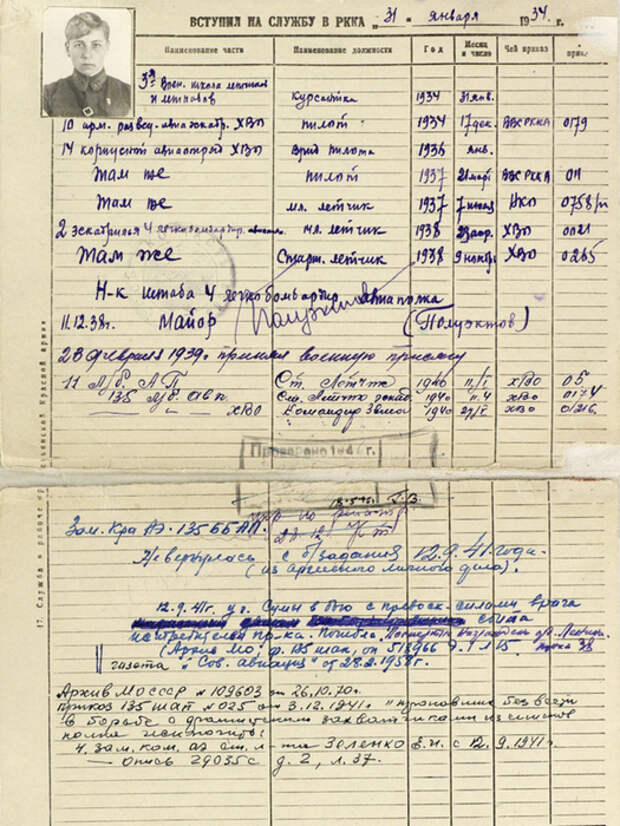 ВСТУПИЛ НА СЛУЖБУ В РККА „31“ января 1934 г.
Наименование части Наименование должности Год Месяц и число Чей приказ № приказа
3я Воен. школа летчиков и летнабов курсантка 1934 31 янв.
10 арм. развед. авиаэскадр. ХВО пилот 1934 17 дек. ВВС РККА 0179
14 корпусной авиаотряд ХВО Врид пилота 1936 янв.
Там же пилот 1937 21 март ВВС РККА 011
Там же мл. летчик 1937 7 НКО 0758/п
2 эскадрилья 4 легкобомбардир. мл. летчик 1938 ХВО 0021
Там же Старш. летчик 1938 9 ноябр. ХВО 0265
Н-к штаба 4 легкобомбардир авиаполка
11.12.38г. Майор (Полуэктов)
23 февраля 1939г. приняла военную присягу
11 Л/б. АП Ст. Летчик 1940 11/I ХВО 05
135 л/б. авп. Ст. Летчик 1940 11.4 ХВО 0174
— „ — ХВО Командир Звена 1940 27/V ХВО 0216
Проверено 194 г.
17. Служба в
Зам. К-ра АЭ. 135 ББАП.
Не вернулась с б/задания 12.9.41 года.
(из архивного личного дела).
12.9.41г. у г. Сумы в бою с превосх. силами врага
сбила
истребитель пр-ка. Погибла.
(Архив МО, ф. 135 шап, оп 518966 д. 1 л 15.
газета "Сов. авиация" от 28.2.1958г.
Архив МО СССР № 109603 от 26.10.70г.
приказ 135 шап №025 от 3.12.1941г "пропавших без вести
в борьбе с фашистскими захватчиками из списков
полка исключить:
4. зам. ком. аэ ст. л-та Зеленко Е.И. с 12.9.1941г
— опись 29035с д. 2, л. 37.